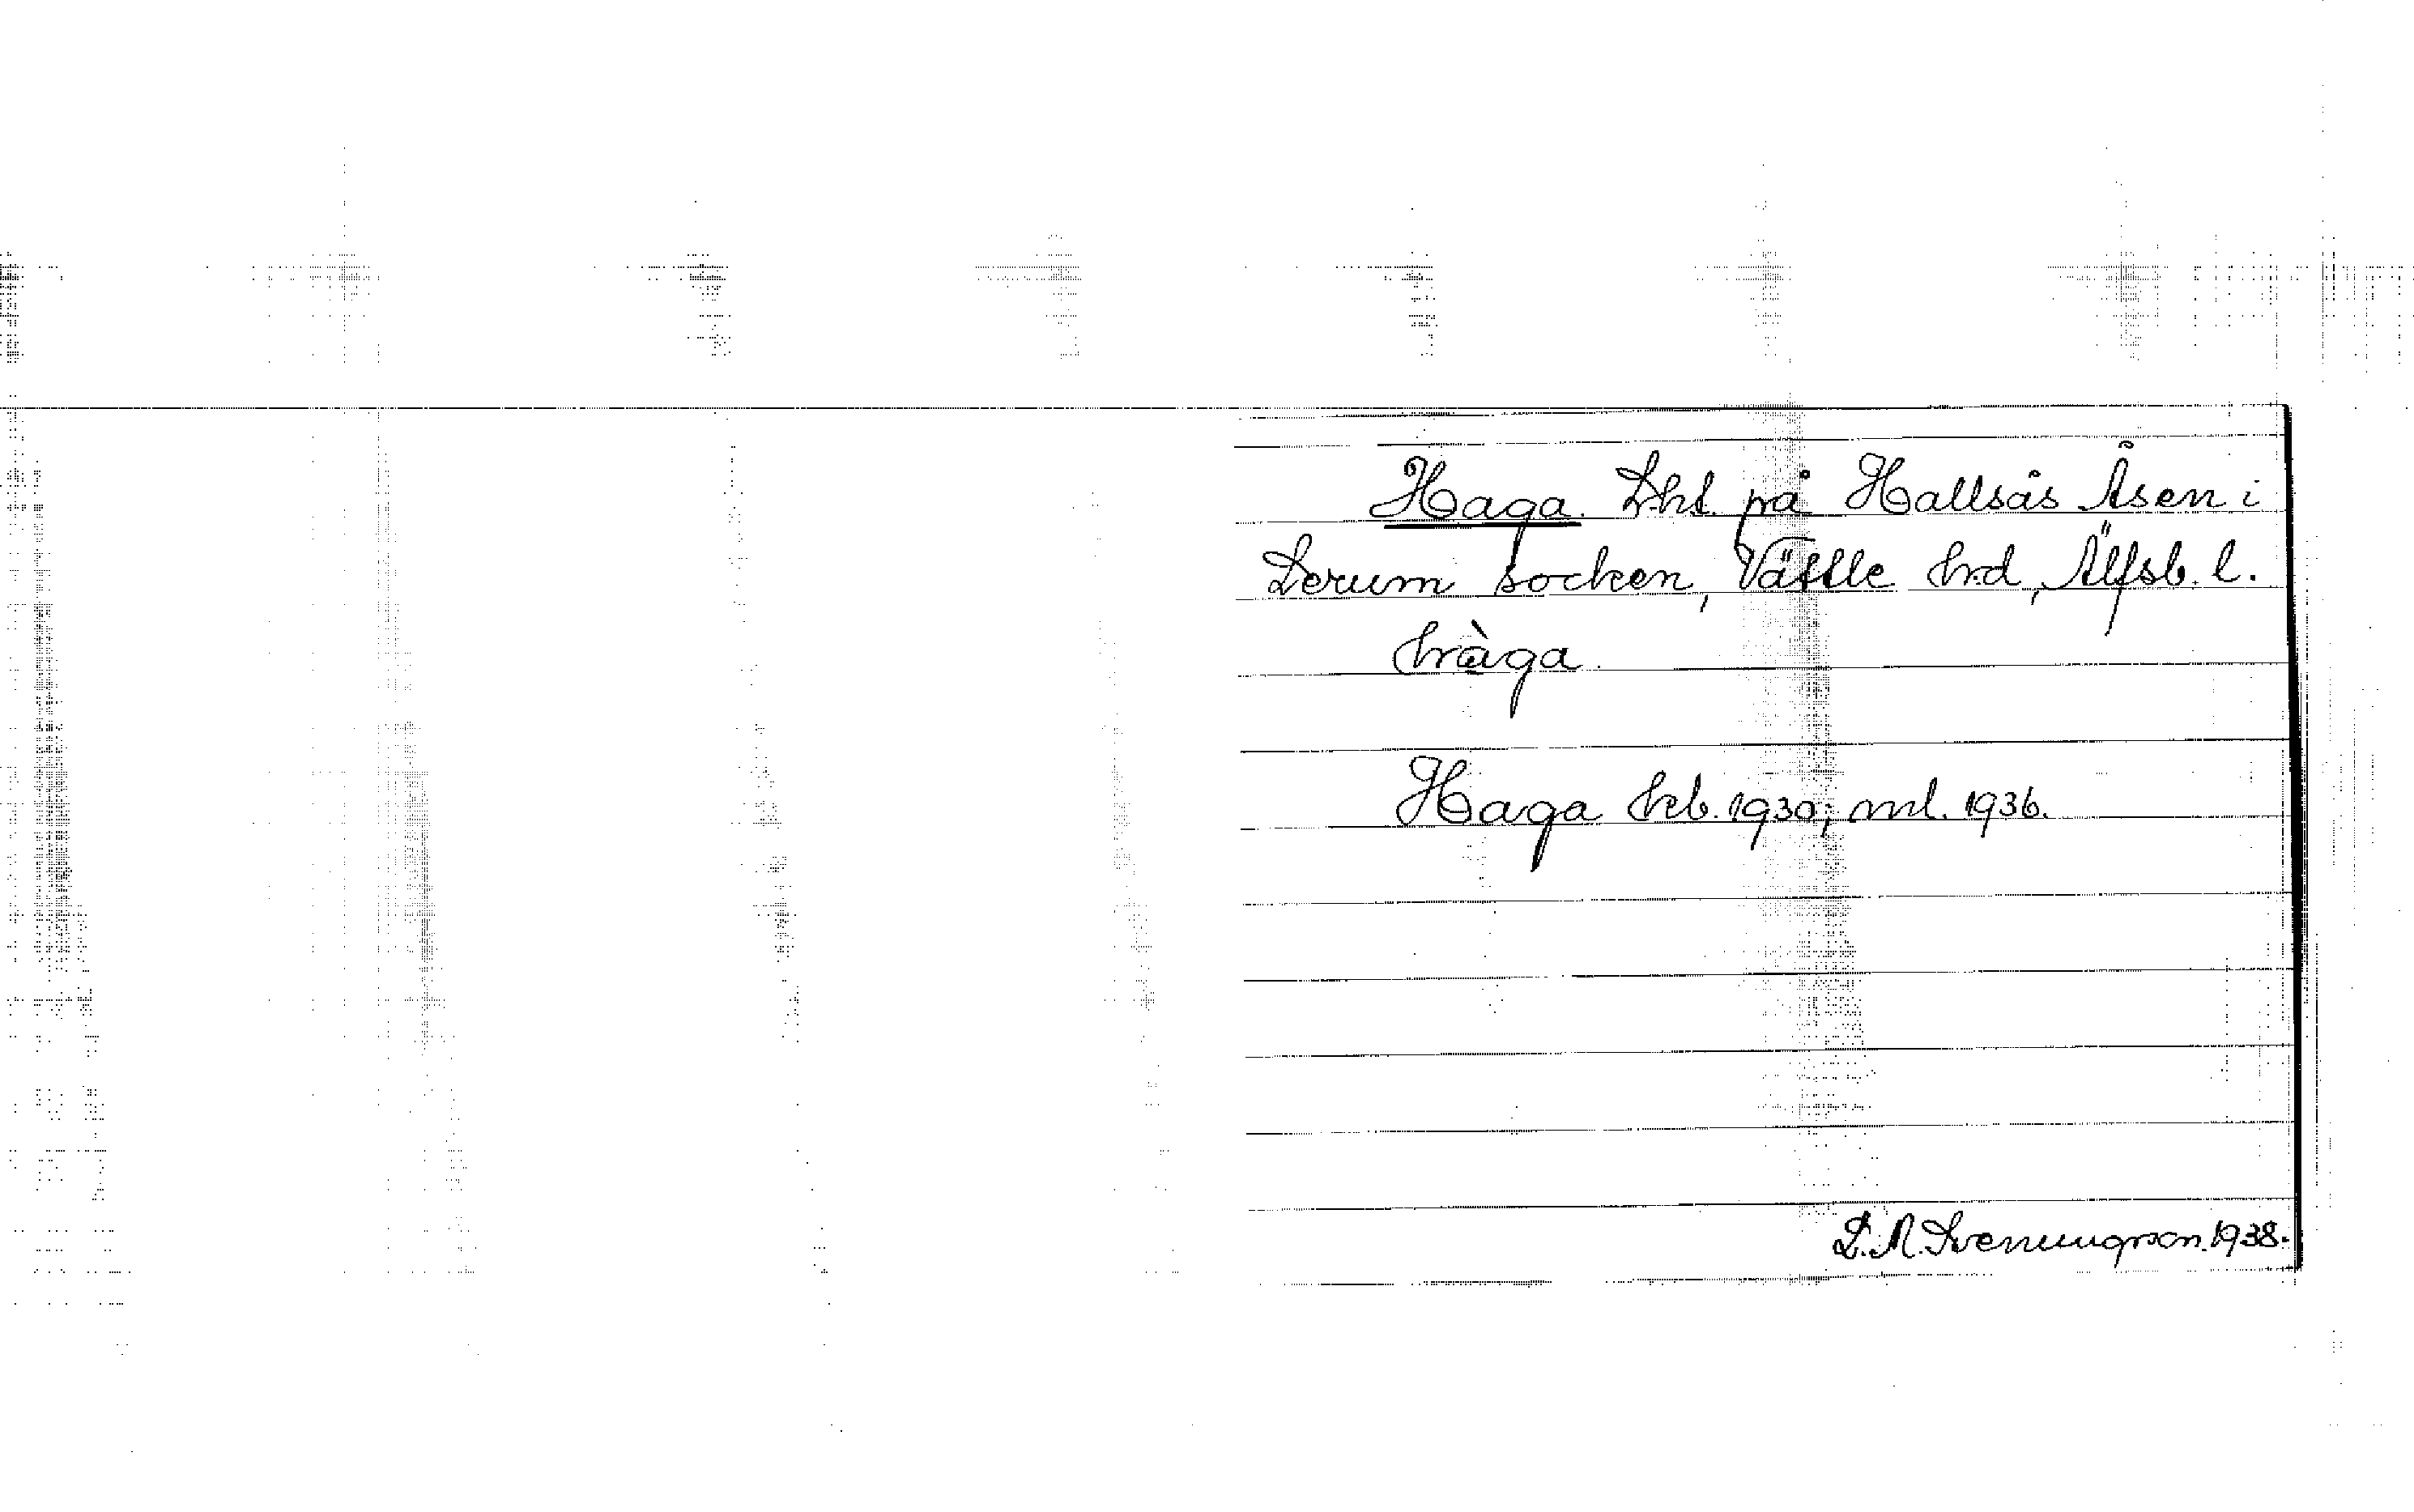 Haga. Lht. på Hallsås Åsen i
Lerum socken, Vättle hrd, Älfsb. l.
hàga.
Haga hfb. 1930; ml. 1936.
S. A. Svenungsson. 1938.